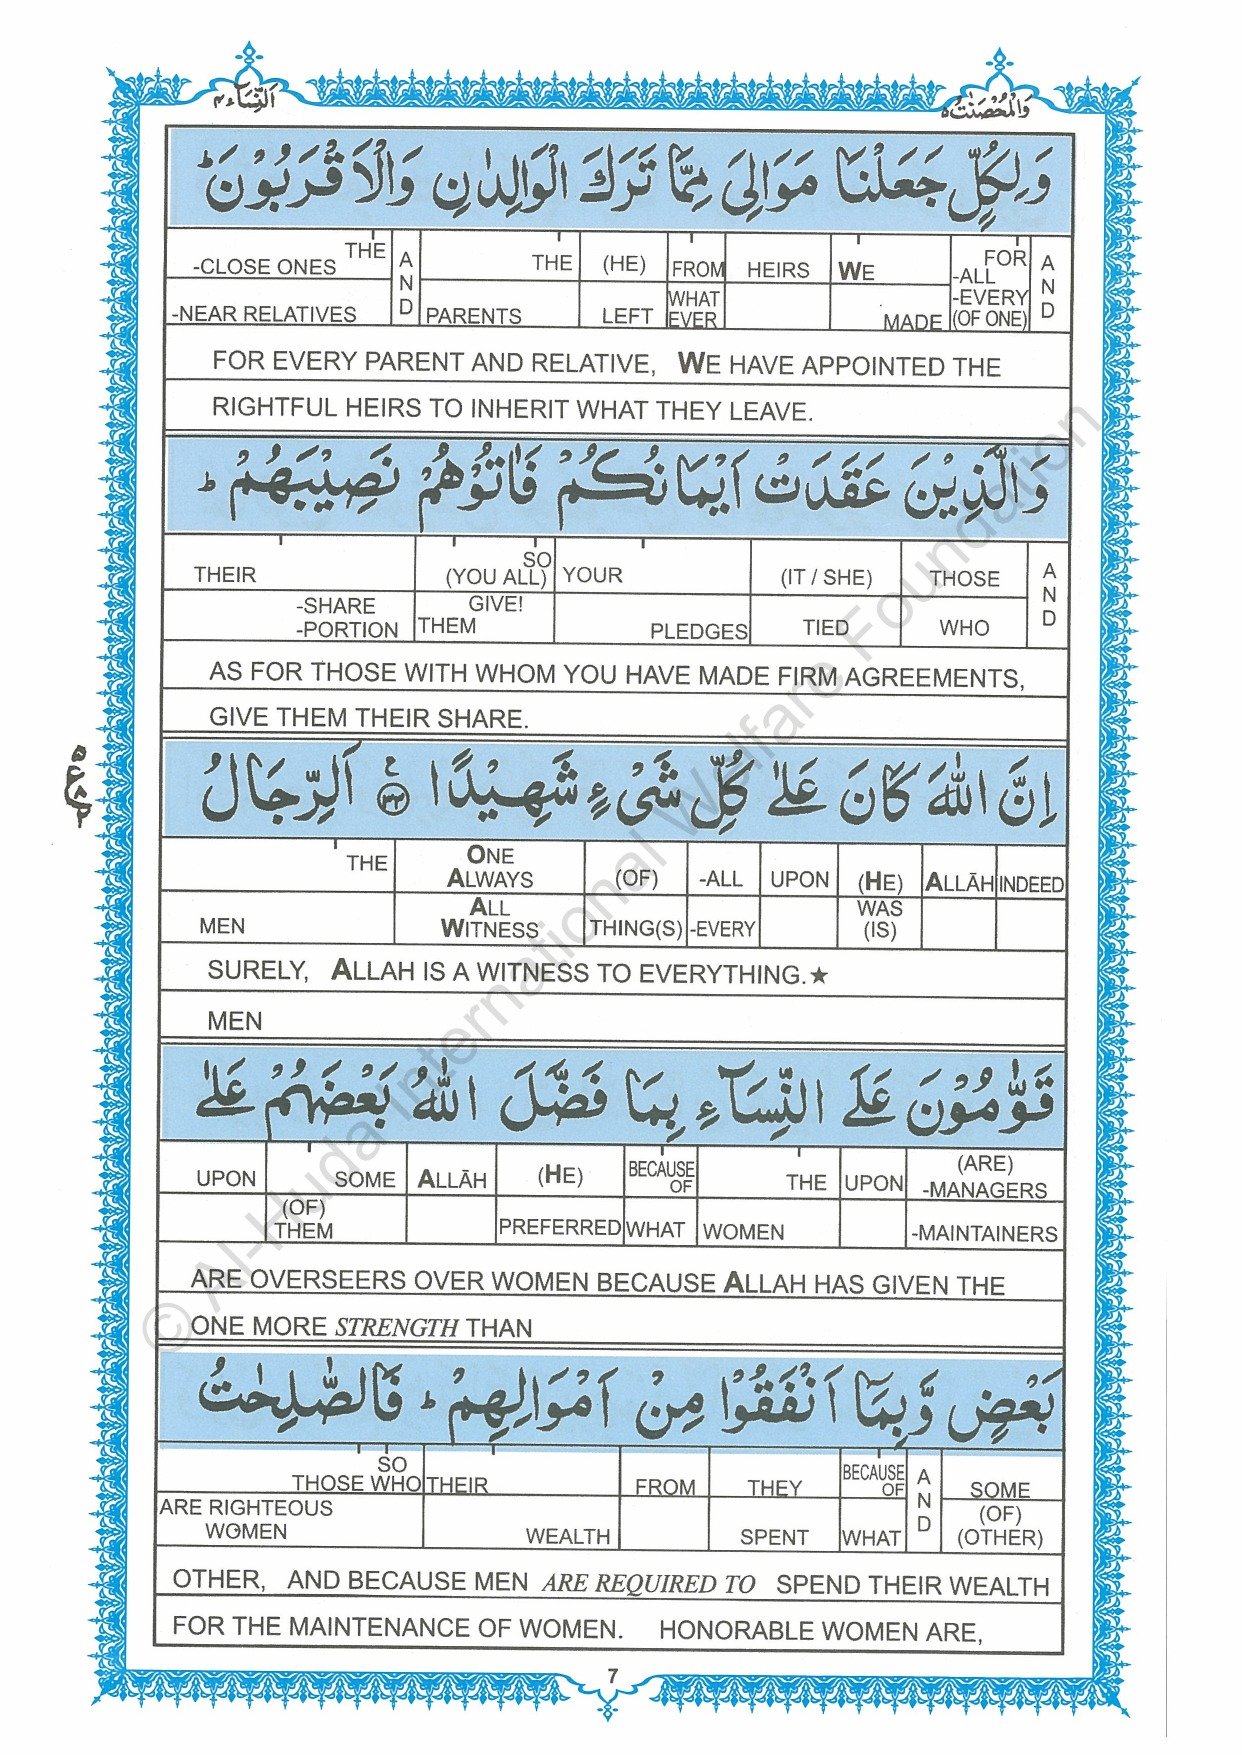 اَلنِّسَآء ٤
وَالْمُحْصَنٰتُ ٥
وَلِكُلٍّ جَعَلْنَا مَوَالِیَ مِمَّا تَرَكَ الْوَالِدٰنِ وَالْاَقْرَبُوْنَ ؕ
THE -CLOSE ONES -NEAR RELATIVES
AND
THE PARENTS
(HE) LEFT
FROM WHAT EVER
HEIRS
WE MADE
FOR -ALL -EVERY (OF ONE)
AND
FOR EVERY PARENT AND RELATIVE, WE HAVE APPOINTED THE
RIGHTFUL HEIRS TO INHERIT WHAT THEY LEAVE.
وَالَّذِيْنَ عَقَدَتْ اَيْمَانُكُمْ فَاٰتُوْهُمْ نَصِيْبَهُمْ ؕ
THEIR -SHARE -PORTION
SO (YOU ALL) GIVE! THEM
YOUR PLEDGES
(IT / SHE) TIED
THOSE WHO
AND
AS FOR THOSE WITH WHOM YOU HAVE MADE FIRM AGREEMENTS,
GIVE THEM THEIR SHARE.
اِنَّ اللّٰهَ كَانَ عَلٰى كُلِّ شَیْءٍ شَهِيْدًا ع ٣٣ اَلرِّجَالُ
THE MEN
ONE ALWAYS ALL WITNESS
(OF) THING(S)
-ALL -EVERY
UPON
(HE) WAS (IS)
ALLĀH
INDEED
SURELY, ALLAH IS A WITNESS TO EVERYTHING.★
MEN
قَوّٰمُوْنَ عَلَى النِّسَآءِ بِمَا فَضَّلَ اللّٰهُ بَعْضَهُمْ عَلٰى
UPON
SOME (OF) THEM
ALLĀH
(HE) PREFERRED
BECAUSE OF WHAT
THE WOMEN
UPON
(ARE) -MANAGERS -MAINTAINERS
ARE OVERSEERS OVER WOMEN BECAUSE ALLAH HAS GIVEN THE
ONE MORE STRENGTH THAN
بَعْضٍ وَّبِمَاۤ اَنْفَقُوْا مِنْ اَمْوَالِهِمْ ؕ فَالصّٰلِحٰتُ
SO THOSE WHO ARE RIGHTEOUS WOMEN
THEIR WEALTH
FROM
THEY SPENT
BECAUSE OF WHAT
AND
SOME (OF) (OTHER)
OTHER, AND BECAUSE MEN ARE REQUIRED TO SPEND THEIR WEALTH
FOR THE MAINTENANCE OF WOMEN. HONORABLE WOMEN ARE,
7
© Al-Huda International Welfare Foundation